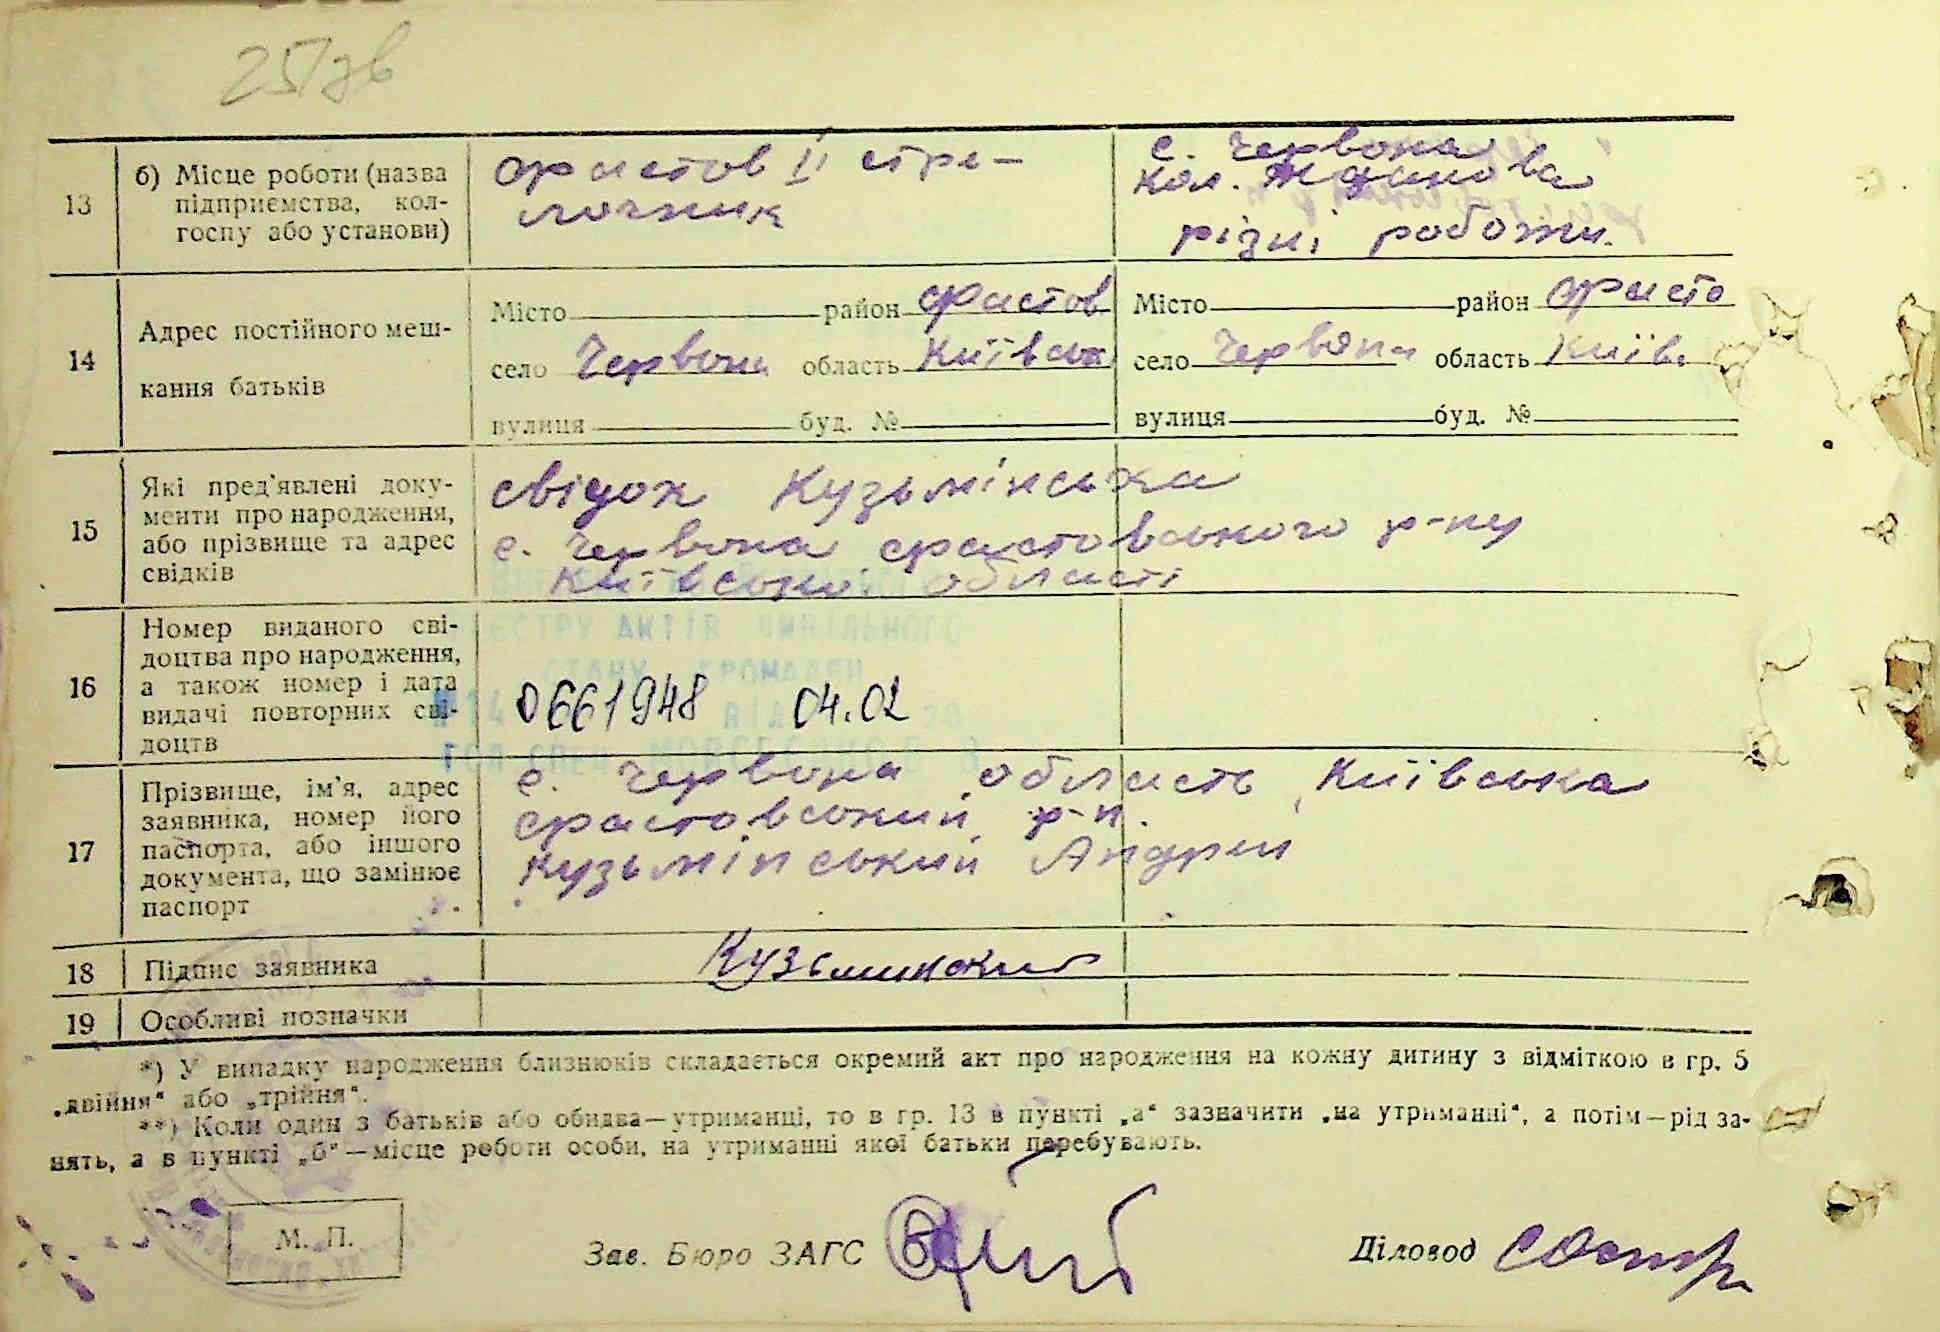 257зв
13
б) Місце роботи (назва
підприємства, кол-
госпу або установи)
Фастов II стре-
лочник
с. Червона
кол. Жданова
різні роботи.
14
Адрес постійного меш-
кання батьків
Місто район Фастов
село Червона область Київськ
вулиця буд. №
Місто район Фасто
село Червона область Київ.
вулиця буд. №
15
Які пред'явлені доку-
менти про народження,
або прізвище та адрес
свідків
свідок Кузьмінська
с. Червона Фастовського р-ну
Київської області
16
Номер виданого сві-
доцтва про народження,
а також номер і дата
видачі повторних сві-
доцтв
ЕСТРУ АКТІВ ЦИВІЛЬНОГО
СТАНУ ГРОМАДЯН
0661948 04.02
17
Прізвище, ім'я, адрес
заявника, номер його
паспорта, або іншого
документа, що замінює
паспорт
с. Червона область Київська
Фастовський р-н.
Кузьмінський Андрей
18
Підпис заявника
Кузьминский
19
Особливі позначки
*) У випадку народження близнюків складається окремий акт про народження на кожну дитину з відміткою в гр. 5
„двійня“ або „трійня“.
**) Коли один з батьків або обидва—утриманці, то в гр. 13 в пункті „а“ зазначити „на утриманні“, а потім—рід за-
нять, а в пункті „б“—місце роботи особи, на утриманні якої батьки перебувають.
М. П.
Зав. Бюро ЗАГС
Діловод